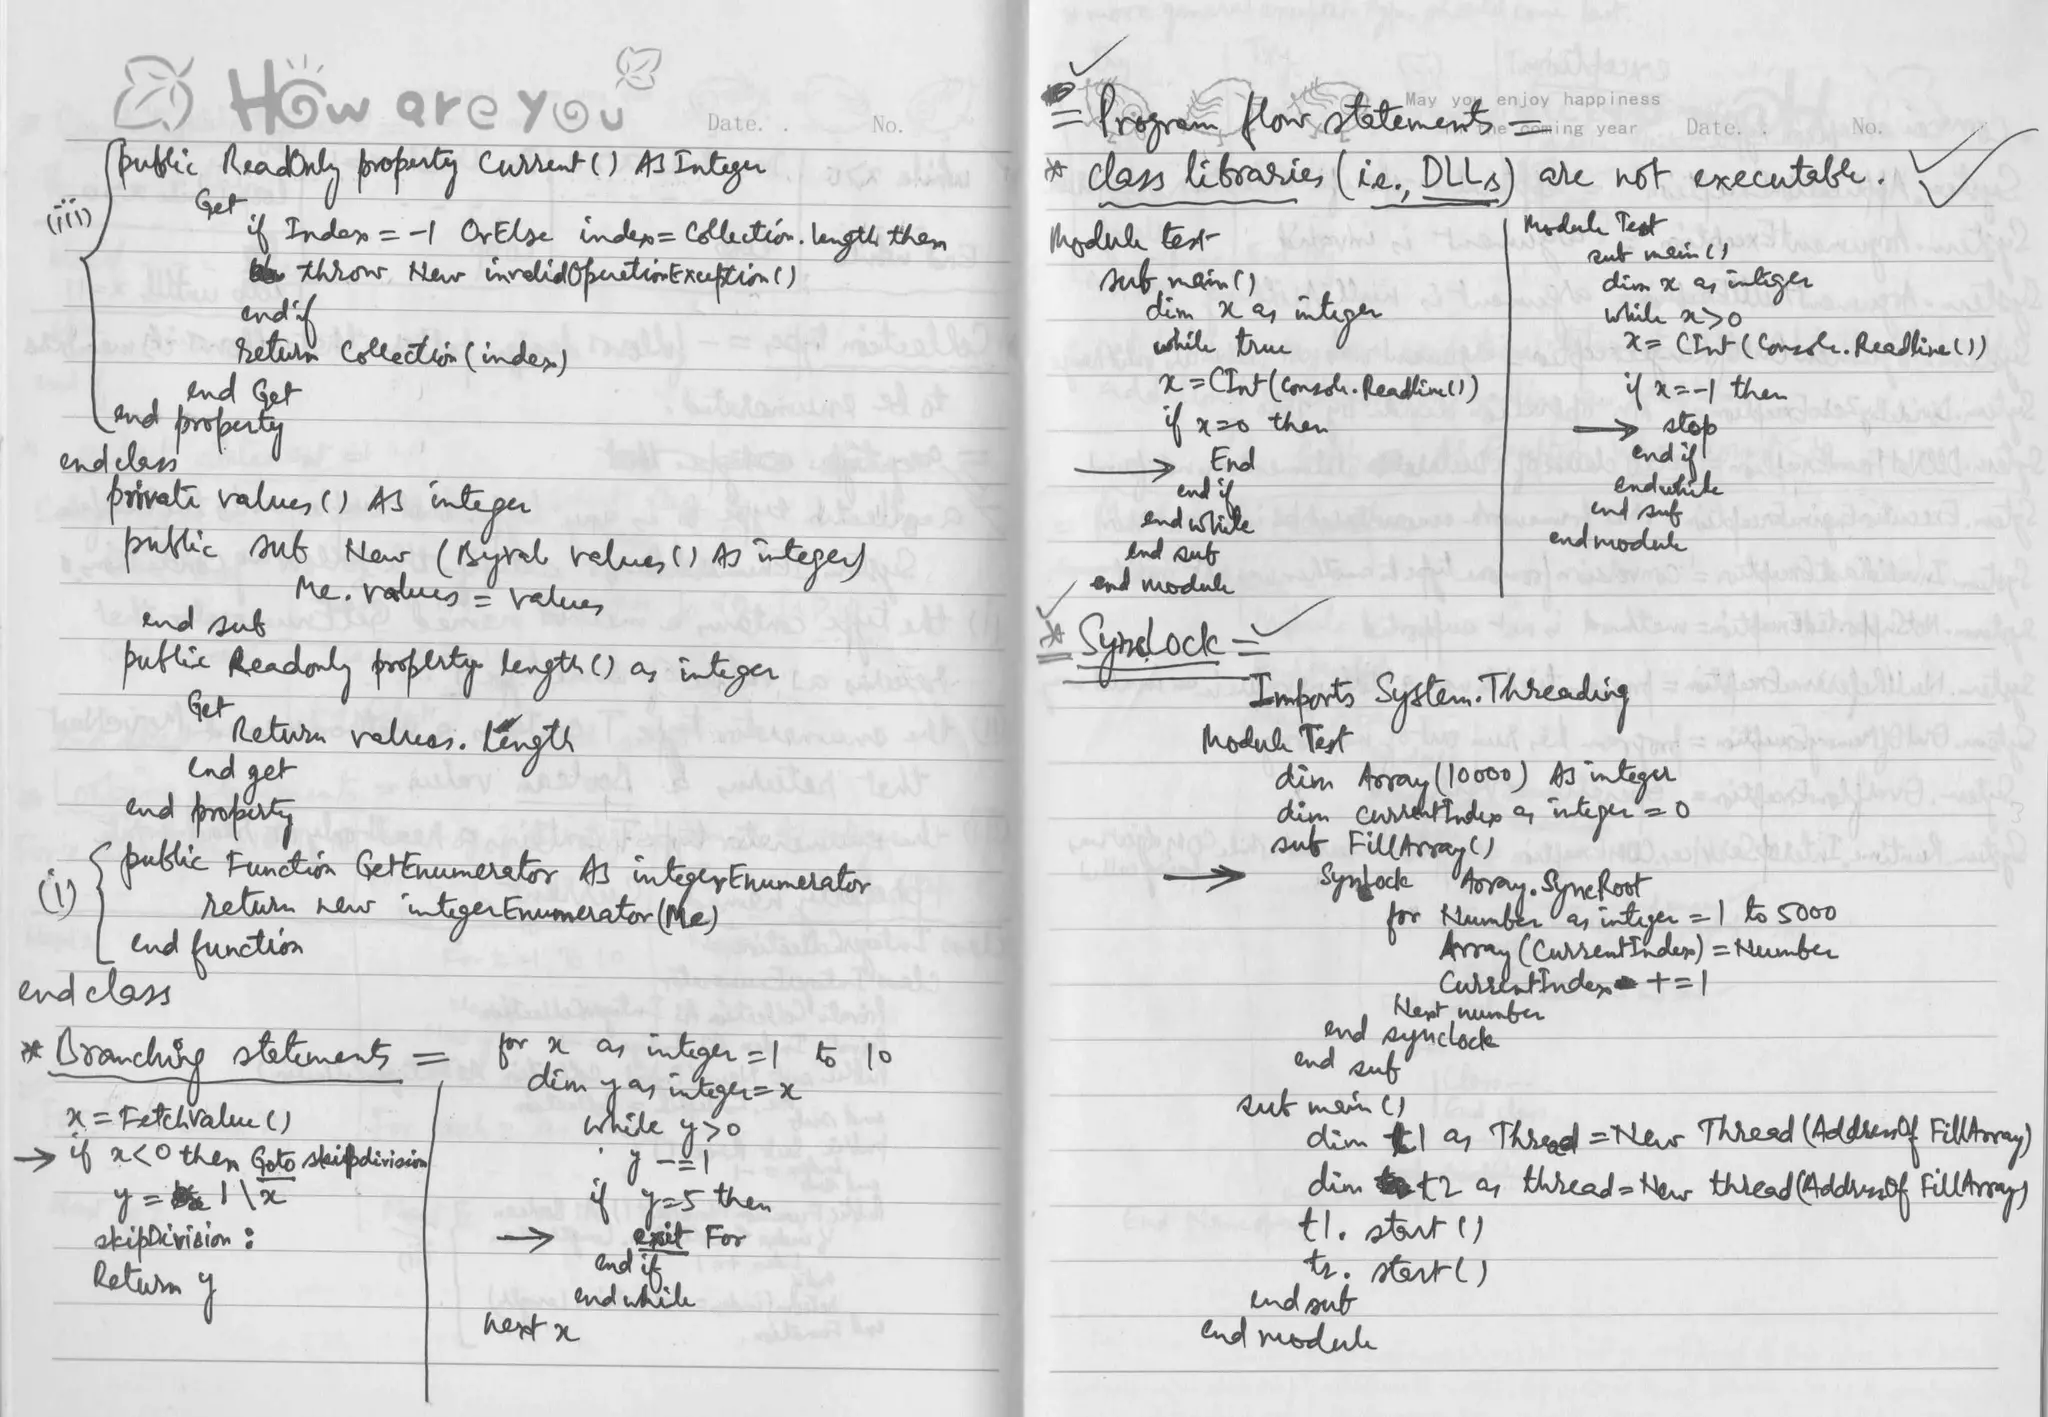 How are you
Date. . No.
(iii)
public ReadOnly property Current() As Integer
Get
if Index = -1 OrElse index = Collection.length then
throw New invalidOperationException()
end if
return Collection(index)
end Get
end property
end class
private values() As integer
public sub New (Byval values() As integer)
Me.values = values
end sub
public Readonly property length() as integer
Get
Return values.Length
end get
end property
(i)
public Function GetEnumerator As integerEnumerator
return new integerEnumerator(Me)
end function
end class
* Branching statements =
x = FetchValue()
→ if x<0 then Goto skipdivision
y = 1\x
skipDivision:
Return y
for x as integer = 1 to 10
dim y as integer = x
while y>0
y -= 1
if y=5 then
→ exit For
end if
end while
next x
May you enjoy happiness
the coming year Date. . No.
= Program flow statements =
* class libraries (i.e., DLLs) are not executable.
Module test
sub main()
dim x as integer
while true
x = CInt(Console.Readline())
if x=0 then
→ End
end if
end while
end sub
end module
Module Test
sub main()
dim x as integer
while x>0
x = CInt(Console.Readline())
if x=-1 then
→ stop
end if
end while
end sub
end module
* Synclock =
Imports System.Threading
Module Test
dim Array(10000) As integer
dim currentIndex as integer = 0
sub FillArray()
→ Synclock Array.SyncRoot
for Number as integer = 1 to 5000
Array(CurrentIndex) = Number
CurrentIndex += 1
Next number
end synclock
end sub
sub main()
dim t1 as Thread = New Thread(AddressOf FillArray)
dim t2 as thread = New thread(AddressOf FillArray)
t1. start()
t2. start()
end sub
end module